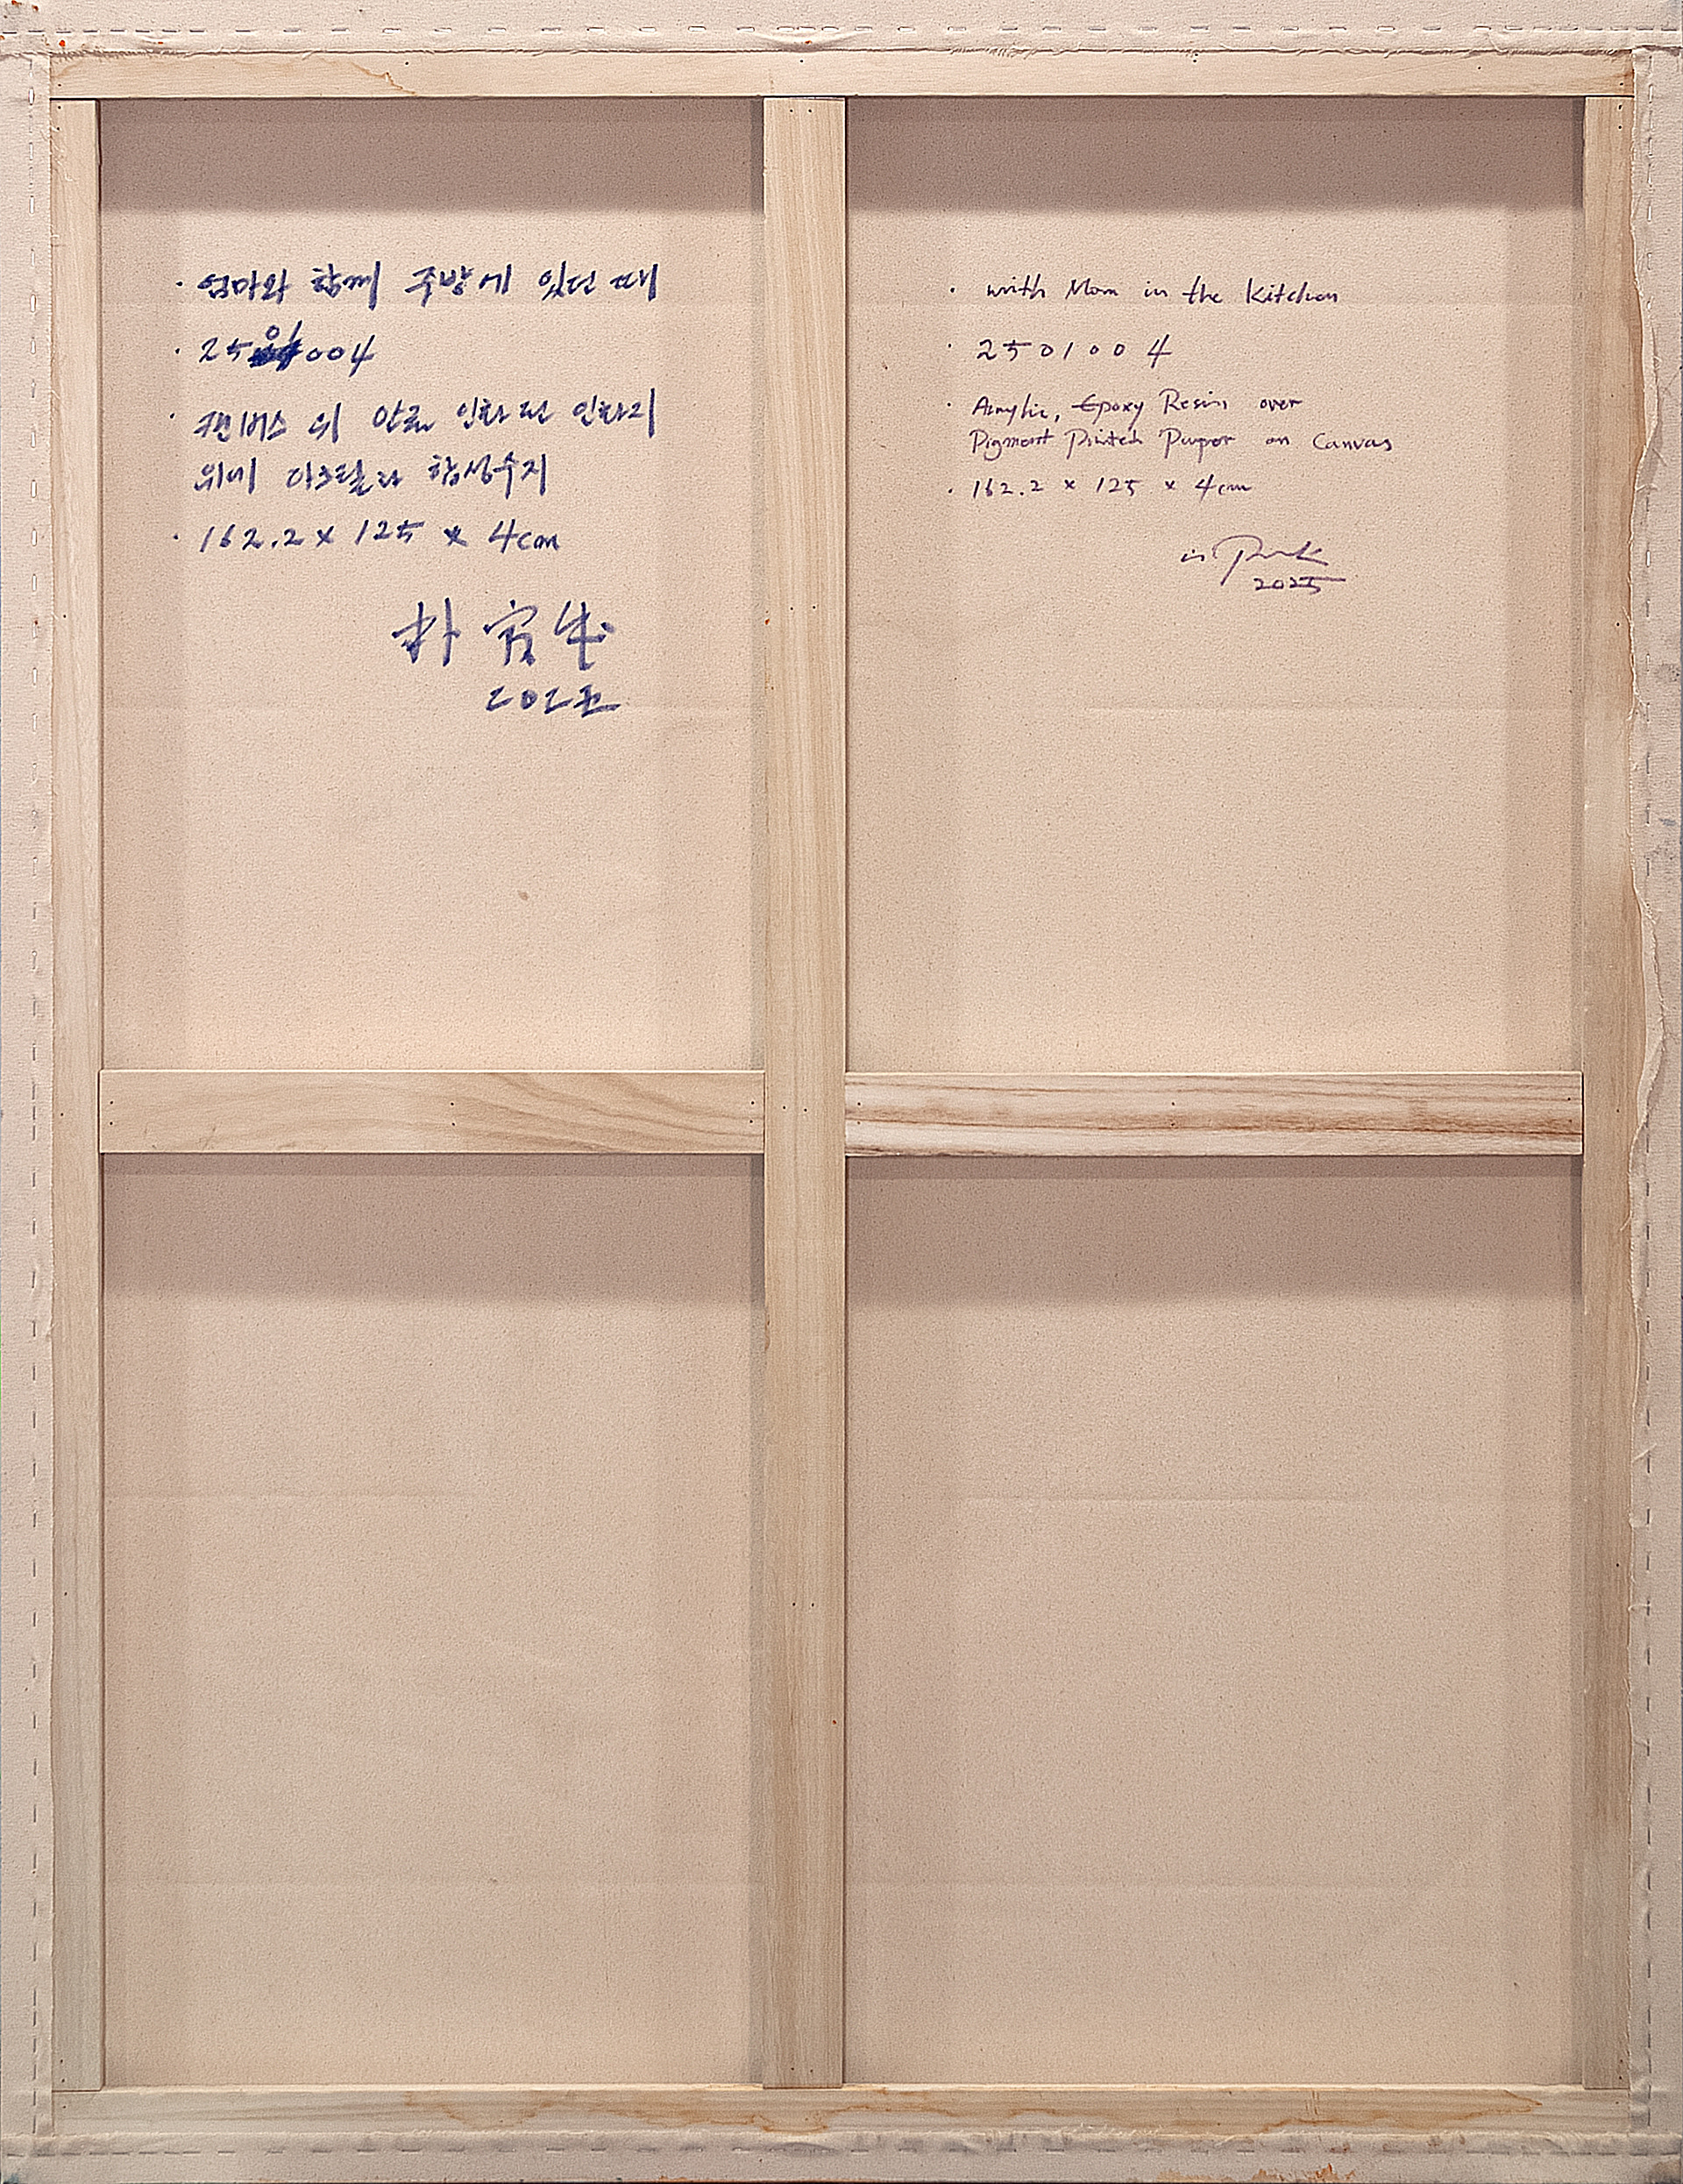 · 엄마와 함께 주방에 있던 때
· 2501004
· 캔버스 위 안료 인화된 인화지
위에 아크릴과 합성수지
· 162.2 x 125 x 4cm
朴
2025
· with Mom in the Kitchen
· 2501004
· Acrylic, Epoxy Resin over
Pigment Printed Paper on Canvas
· 162.2 x 125 x 4cm
Park
2025